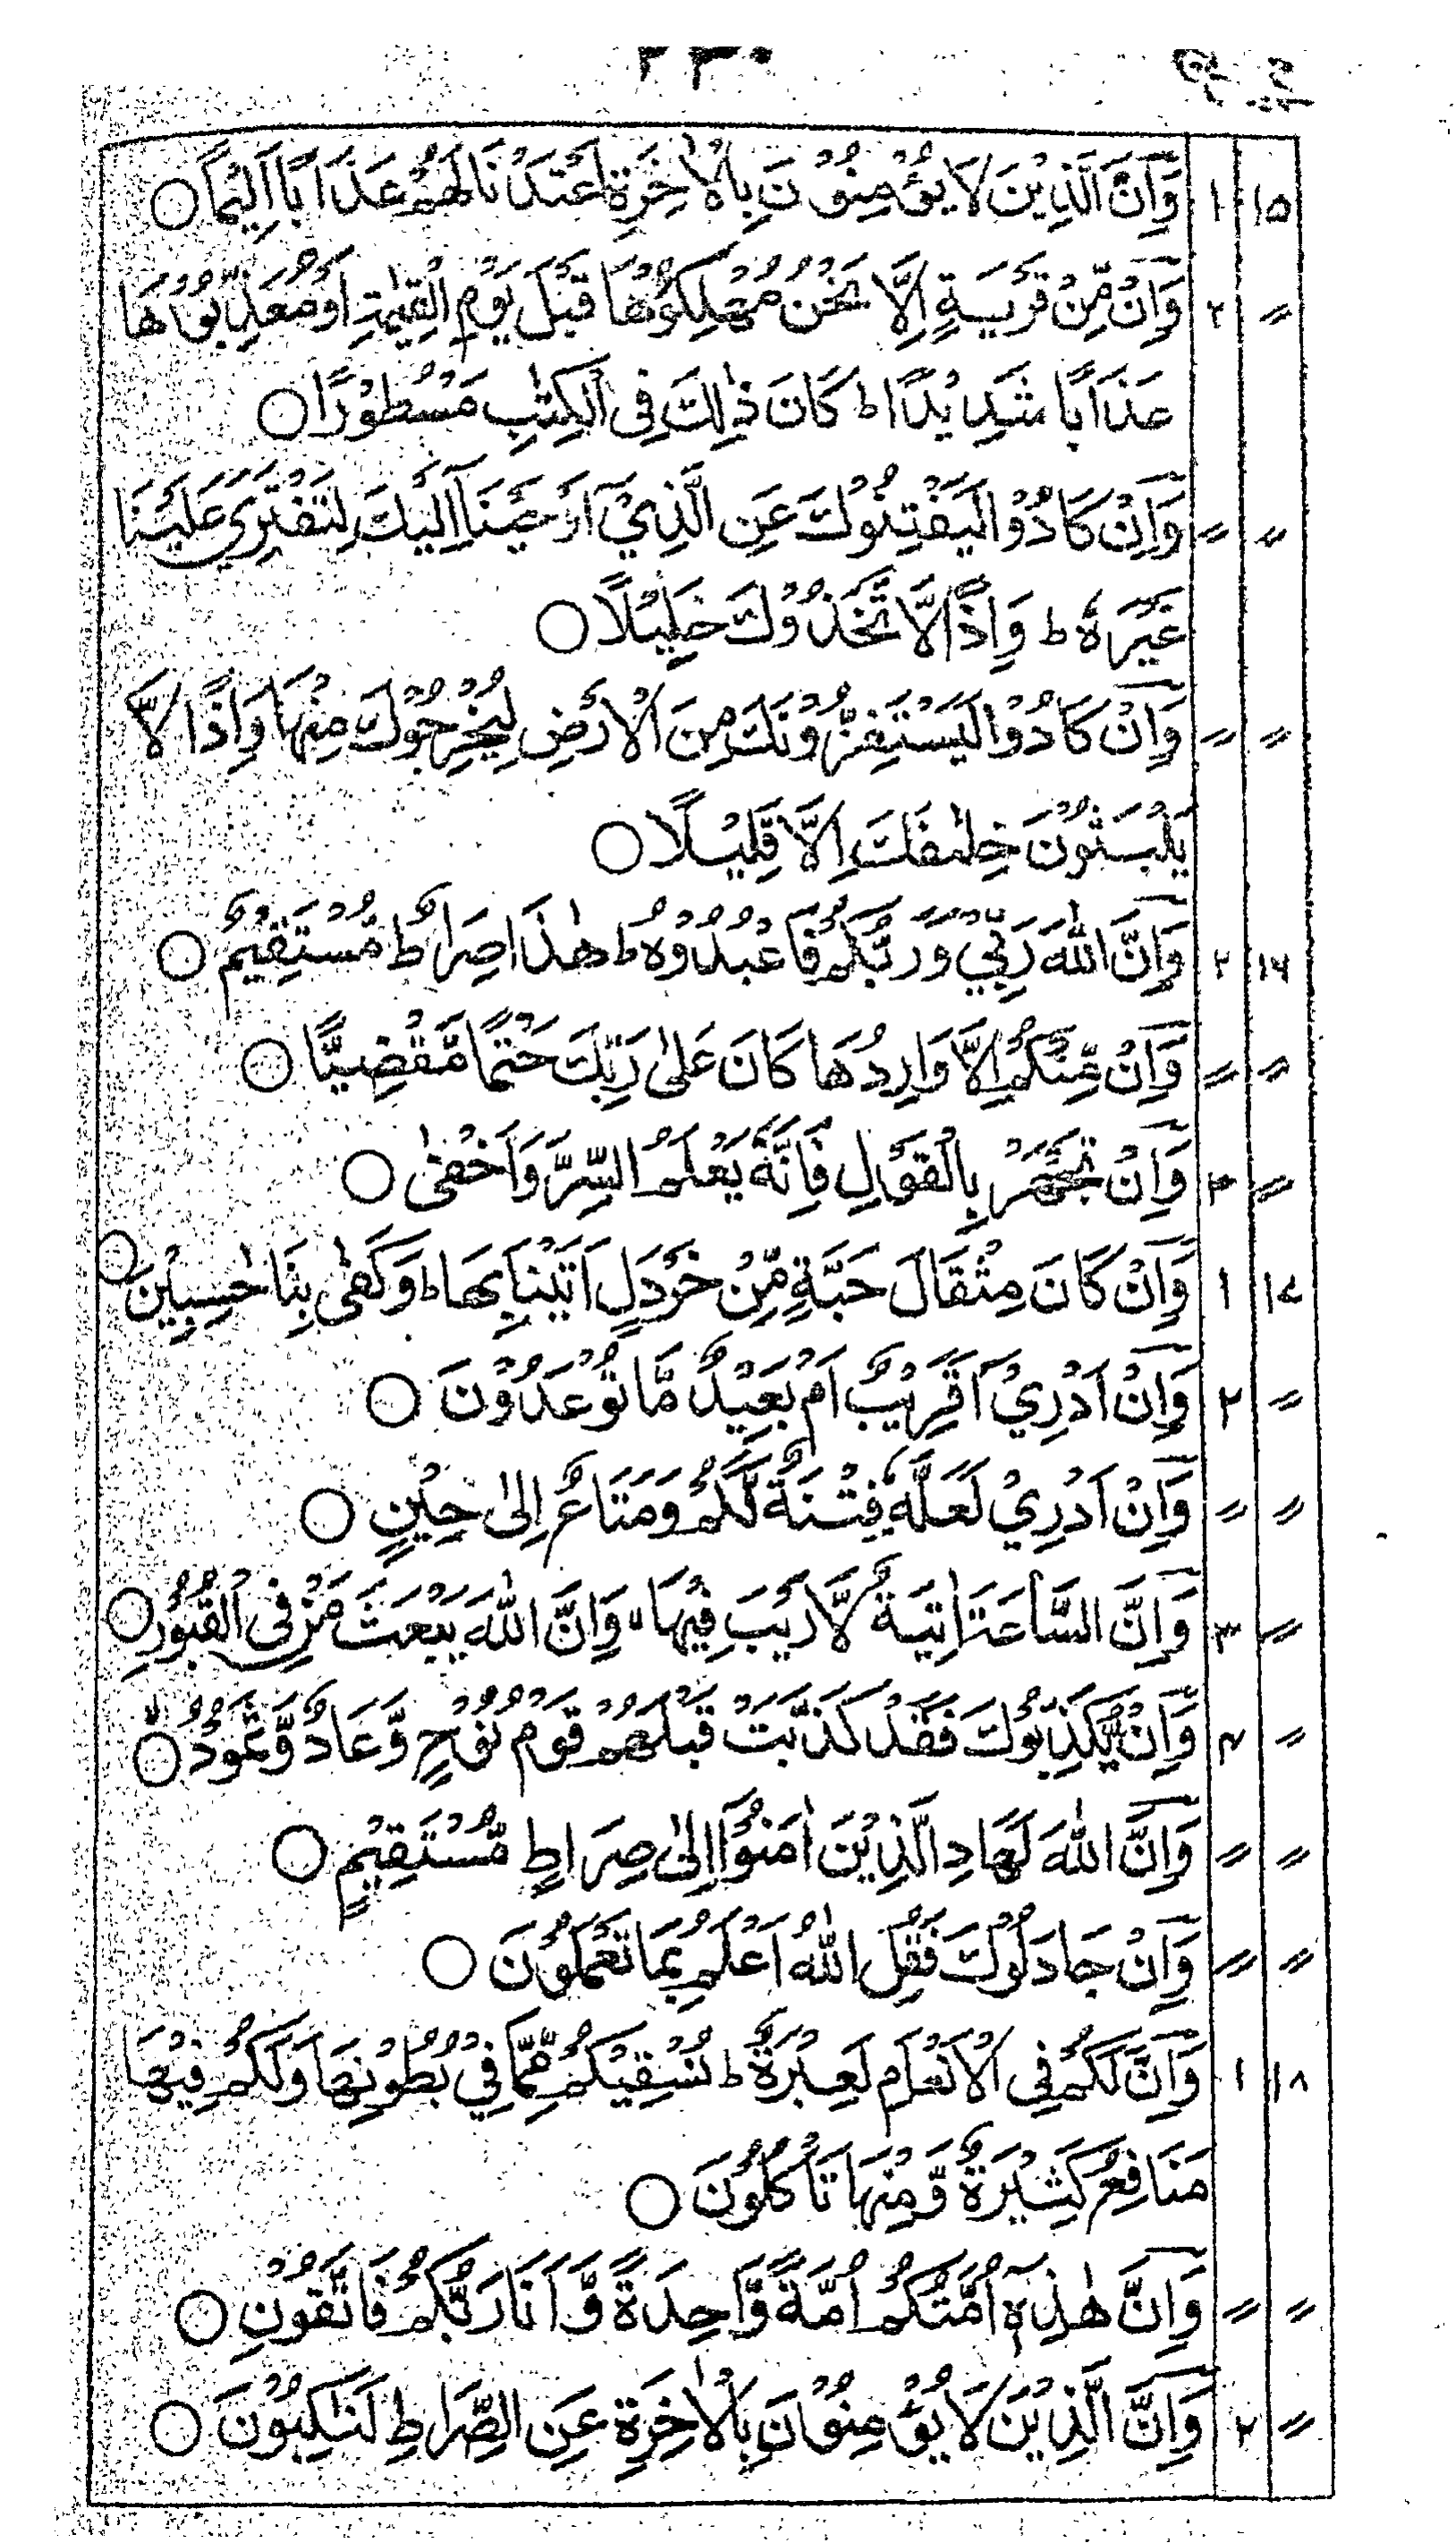 ۲۳۰
۱۵ ۱ وَاَنَّ الَّذِيْنَ لَا يُؤْمِنُوْنَ بِالْاٰخِرَةِ اَعْتَدْنَا لَهُمْ عَذَابًا اَلِيْمًا ○
〃 ۲ وَاِنْ مِّنْ قَرْيَةٍ اِلَّا نَحْنُ مُهْلِكُوْهَا قَبْلَ يَوْمِ الْقِيٰمَةِ اَوْ مُعَذِّبُوْهَا
عَذَابًا شَدِيْدًا ط كَانَ ذٰلِكَ فِى الْكِتٰبِ مَسْطُوْرًا ○
〃 〃 وَاِنْ كَادُوْا لَيَفْتِنُوْنَكَ عَنِ الَّذِيْٓ اَوْحَيْنَآ اِلَيْكَ لِتَفْتَرِيَ عَلَيْنَا
غَيْرَهٗ ط وَاِذًا لَّاتَّخَذُوْكَ خَلِيْلًا ○
〃 〃 وَاِنْ كَادُوْا لَيَسْتَفِزُّوْنَكَ مِنَ الْاَرْضِ لِيُخْرِجُوْكَ مِنْهَا وَاِذًا لَّا
يَلْبَثُوْنَ خِلٰفَكَ اِلَّا قَلِيْلًا ○
۱۶ ۲ وَاِنَّ اللّٰهَ رَبِّيْ وَرَبُّكُمْ فَاعْبُدُوْهُ ط هٰذَا صِرَاطٌ مُّسْتَقِيْمٌ ○
〃 〃 وَاِنْ مِّنْكُمْ اِلَّا وَارِدُهَا كَانَ عَلٰى رَبِّكَ حَتْمًا مَّقْضِيًّا ○
〃 ۳ وَاِنْ تَجْهَرْ بِالْقَوْلِ فَاِنَّهٗ يَعْلَمُ السِّرَّ وَاَخْفٰى ○
۱۷ ۱ وَاِنْ كَانَ مِثْقَالَ حَبَّةٍ مِّنْ خَرْدَلٍ اَتَيْنَا بِهَا ط وَكَفٰى بِنَا حٰسِبِيْنَ ○
〃 ۲ وَاِنْ اَدْرِيْٓ اَقَرِيْبٌ اَمْ بَعِيْدٌ مَّا تُوْعَدُوْنَ ○
〃 〃 وَاِنْ اَدْرِيْ لَعَلَّهٗ فِتْنَةٌ لَّكُمْ وَمَتَاعٌ اِلٰى حِيْنٍ ○
〃 ۳ وَاَنَّ السَّاعَةَ اٰتِيَةٌ لَّا رَيْبَ فِيْهَا وَاَنَّ اللّٰهَ يَبْعَثُ مَنْ فِى الْقُبُوْرِ ○
〃 ۴ وَاِنْ يُّكَذِّبُوْكَ فَقَدْ كَذَّبَتْ قَبْلَهُمْ قَوْمُ نُوْحٍ وَّعَادٌ وَّثَمُوْدُ ○
〃 〃 وَاِنَّ اللّٰهَ لَهَادِ الَّذِيْنَ اٰمَنُوْٓا اِلٰى صِرَاطٍ مُّسْتَقِيْمٍ ○
〃 〃 وَاِنْ جَادَلُوْكَ فَقُلِ اللّٰهُ اَعْلَمُ بِمَا تَعْمَلُوْنَ ○
۱۸ ۱ وَاِنَّ لَكُمْ فِى الْاَنْعَامِ لَعِبْرَةً ط نُسْقِيْكُمْ مِّمَّا فِيْ بُطُوْنِهَا وَلَكُمْ فِيْهَا
مَنَافِعُ كَثِيْرَةٌ وَّمِنْهَا تَاْكُلُوْنَ ○
〃 〃 وَاِنَّ هٰذِهٖٓ اُمَّتُكُمْ اُمَّةً وَّاحِدَةً وَّاَنَا رَبُّكُمْ فَاتَّقُوْنِ ○
〃 ۲ وَاِنَّ الَّذِيْنَ لَا يُؤْمِنُوْنَ بِالْاٰخِرَةِ عَنِ الصِّرَاطِ لَنٰكِبُوْنَ ○